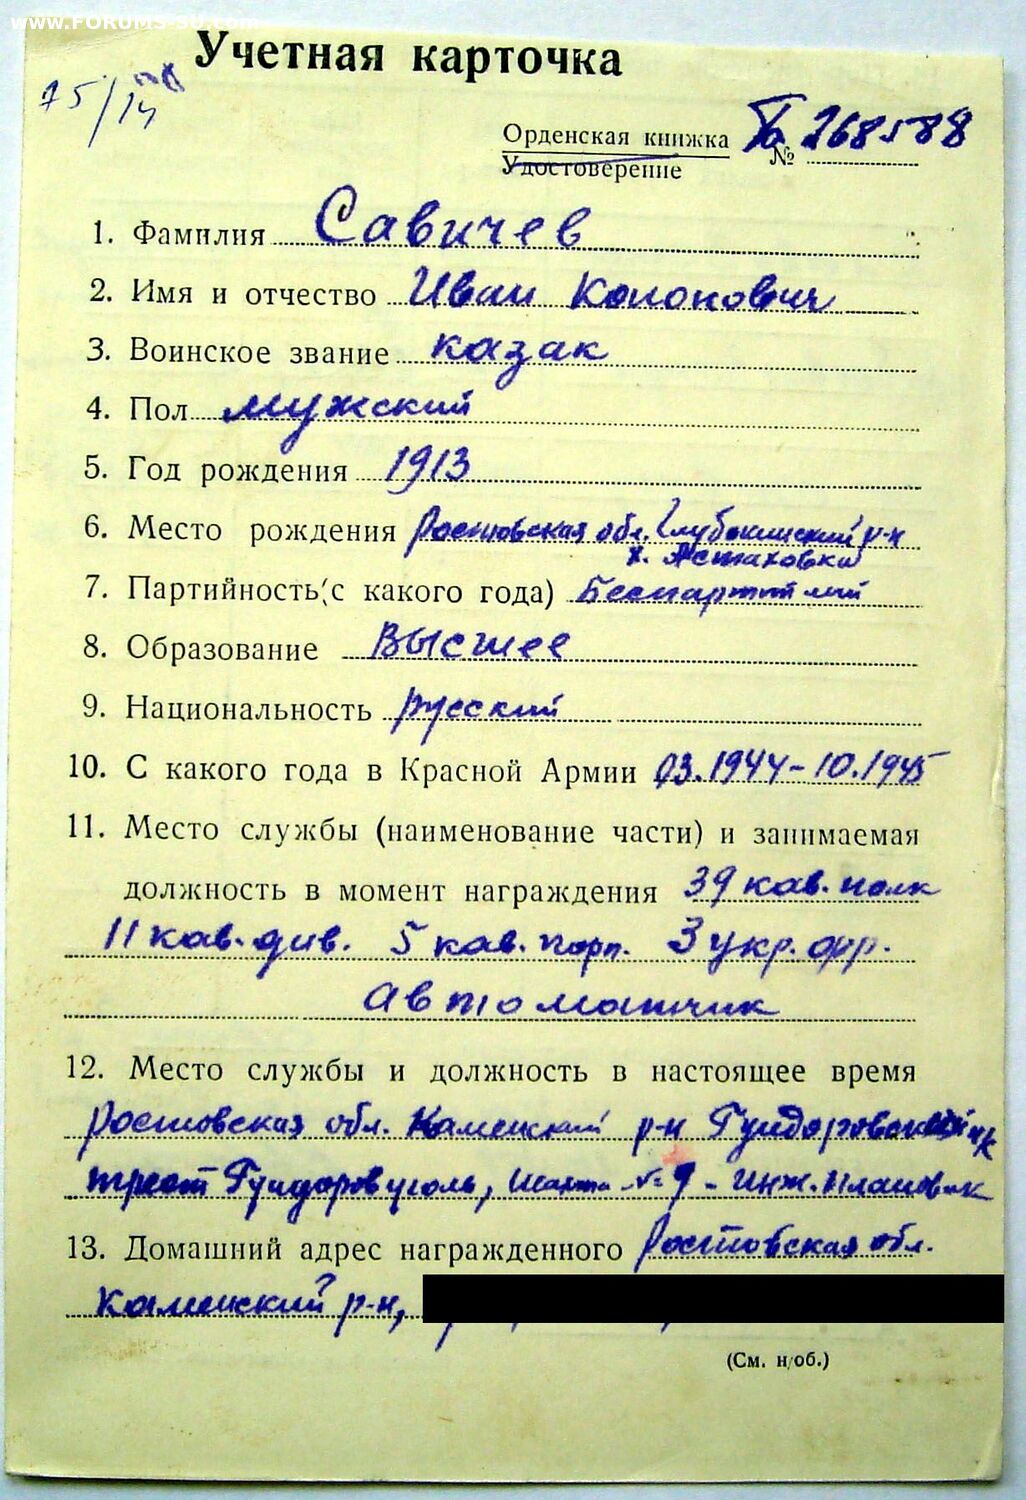 www.FORUMS-SU.com
Учетная карточка
75/14
Орденская книжка № Б 268588
Удостоверение
1. Фамилия Савичев
2. Имя и отчество Иван Кононович
3. Воинское звание казак
4. Пол мужской
5. Год рождения 1913
6. Место рождения Ростовская обл. Глубокинский р-н
х. Астаховка
7. Партийность (с какого года) Беспартийный
8. Образование Высшее
9. Национальность русский
10. С какого года в Красной Армии 03.1944-10.1945
11. Место службы (наименование части) и занимаемая
должность в момент награждения 39 кав. полк
11 кав. див. 5 кав. корп. 3 укр. фр.
Автоматчик
12. Место службы и должность в настоящее время
Ростовская обл. Каменский р-н
трест Гундоровуголь, шахта № 9 - инж. плановик
13. Домашний адрес награжденного Ростовская обл.
Каменский р-н,
(См. н/об.)